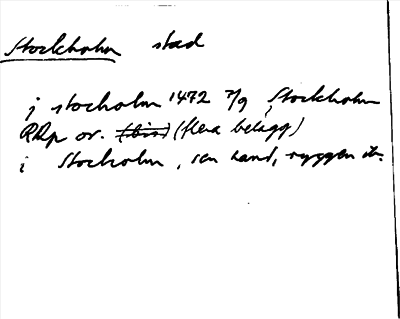 Stockholm stad
j stocholm 1472 7/9, Stockholm
RAp or. (flera belägg)
i Stocholm, sen hand, ryggen ib.